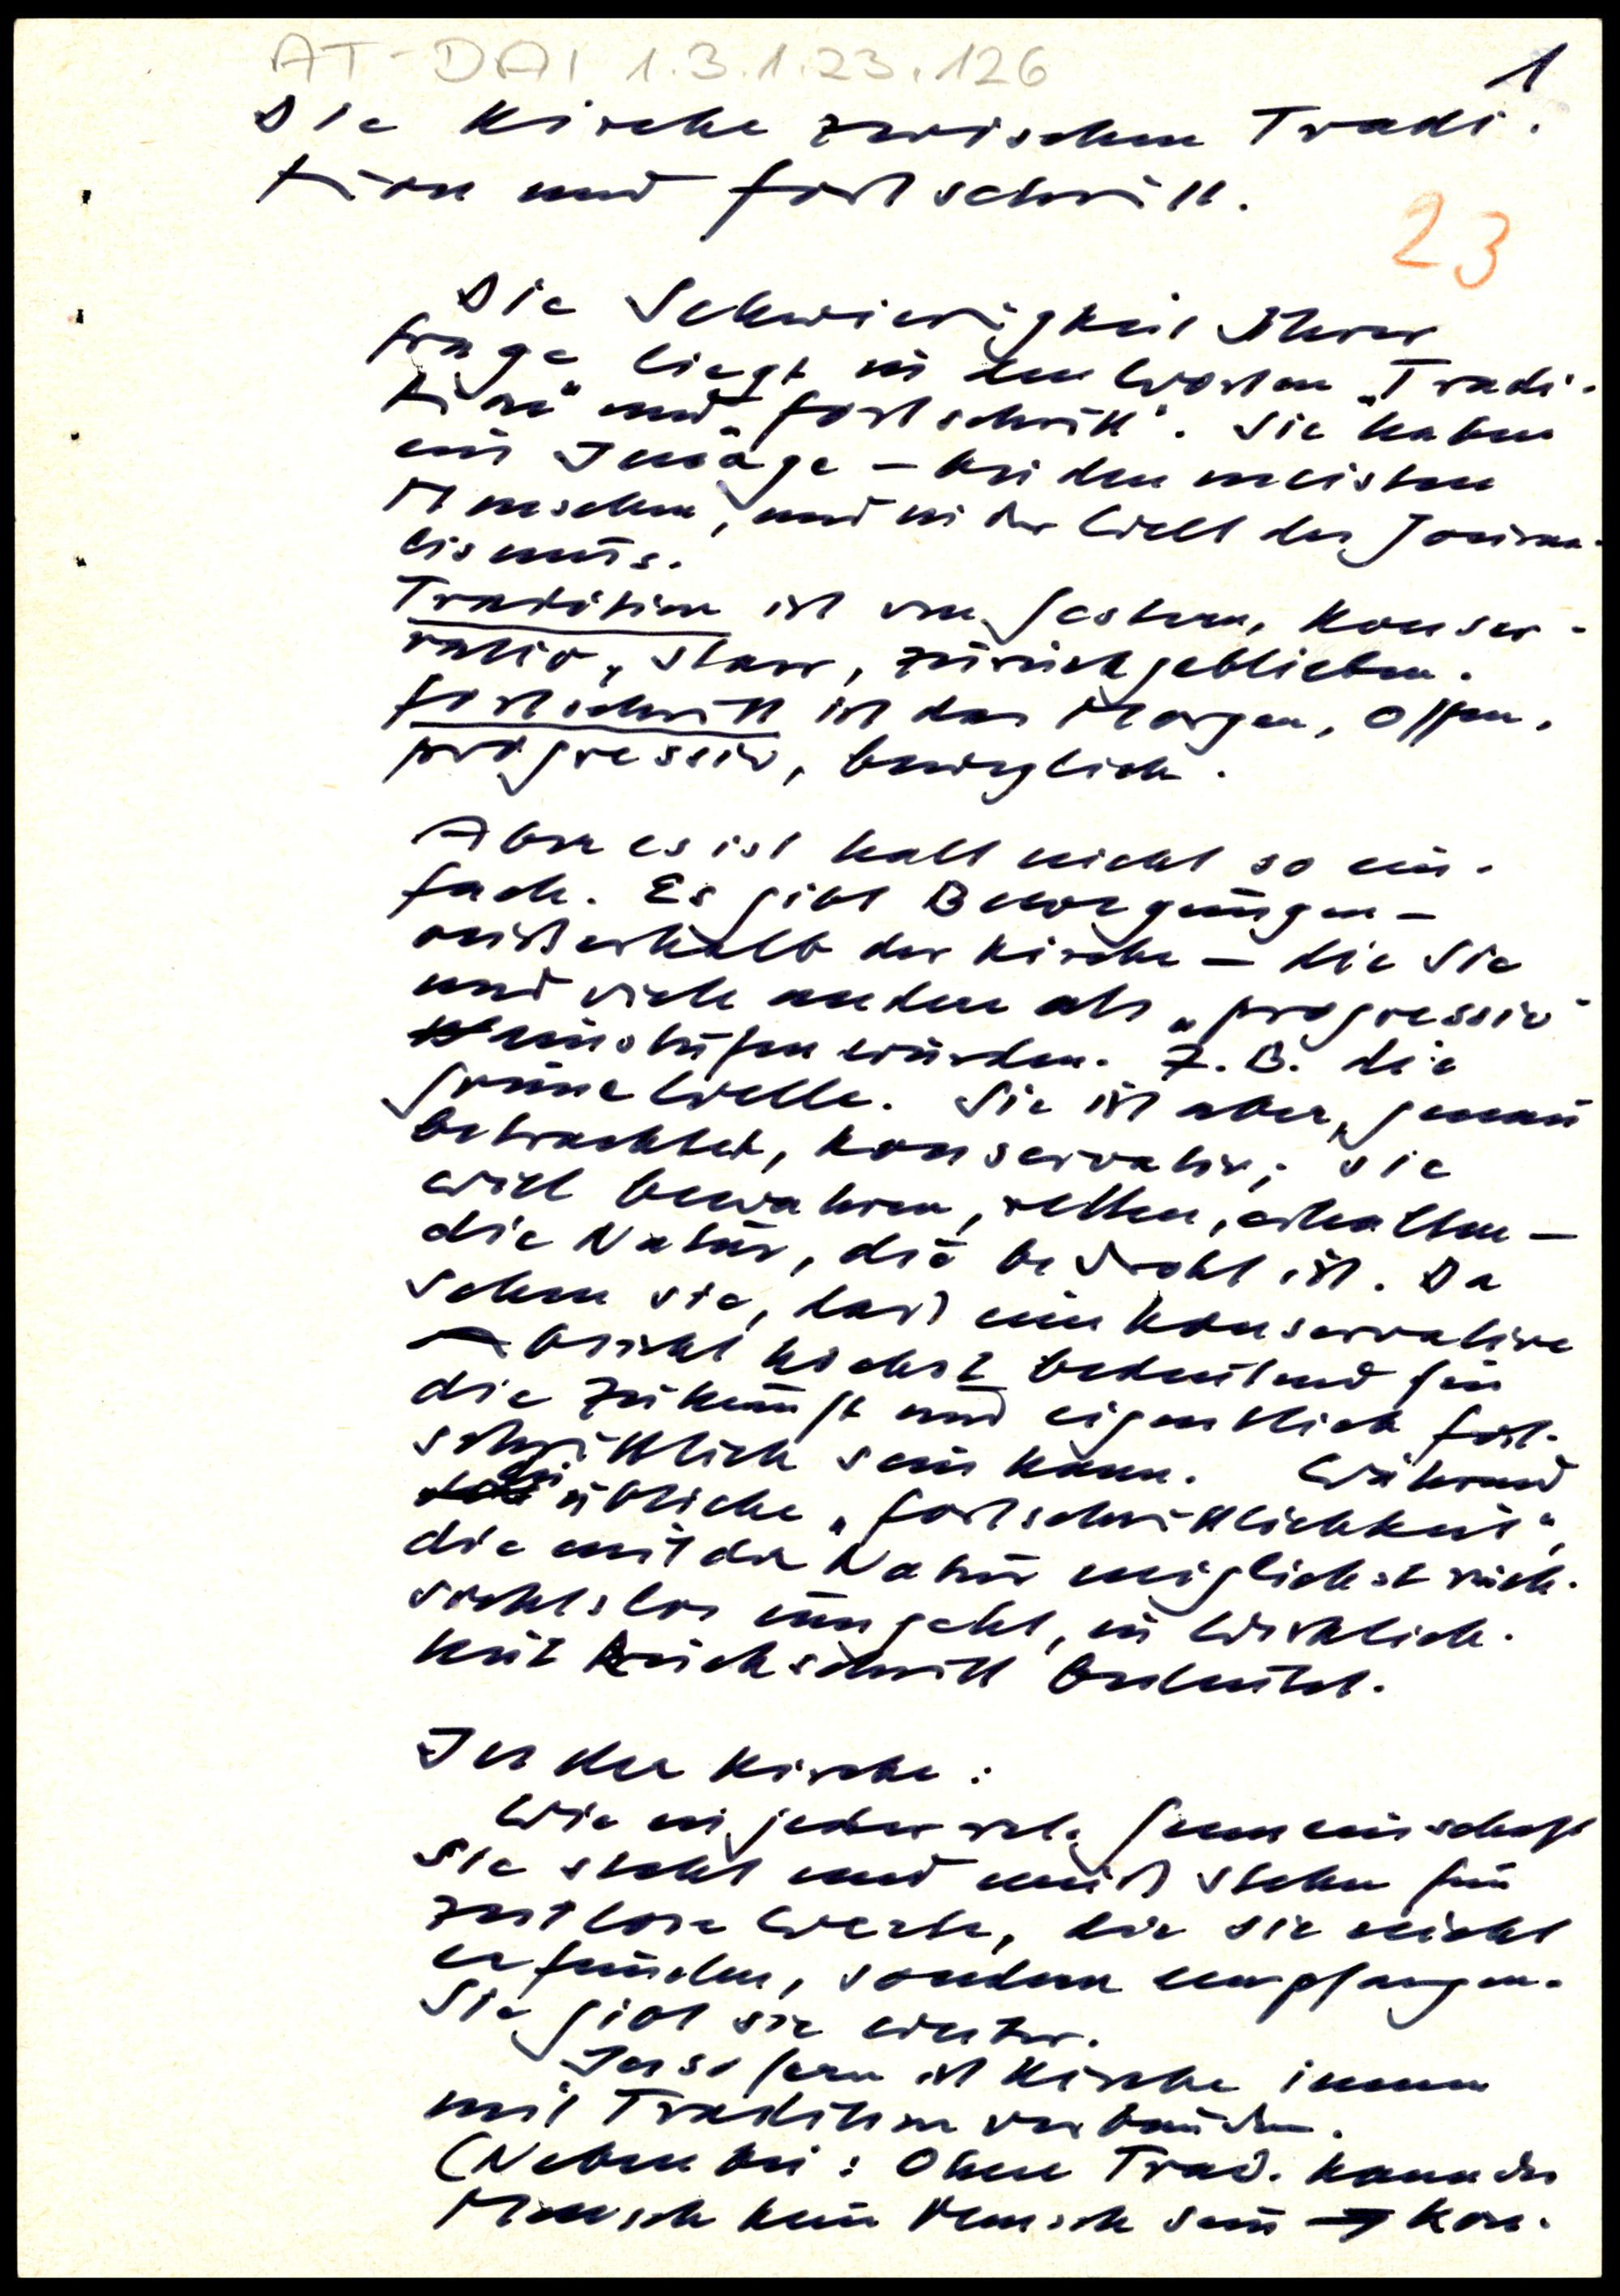 AT-DAI 1.3.1.23.126
1
Die Kirche zwischen Tradi-
tion und Fortschritt.
23
Die Schwierigkeit Ihrer
Frage liegt in den Worten „Tradi-
tion" und „Fortschritt". Sie haben
ein Image – bei den meisten
Menschen, und in der Welt des Journa-
lismus.
Tradition ist von Gestern, konser-
vativ, starr, zurückgeblieben.
Fortschritt ist das Morgen, offen,
progressiv, beweglich.
Aber es ist halt nicht so ein-
fach. Es gibt Bewegungen –
außerhalb der Kirche – die Sie
und viele andere als „progressiv"
einstufen würden. Z.B. die
grüne Welle. Sie ist aber, genau
betrachtet, konservativ; sie
will bewahren, retten, erhalten –
die Natur, die bedroht ist. Da
sehen sie, daß eine konservative
Absicht höchst bedeutend für
die Zukunft und eigentlich fort-
schrittlich sein kann. Während
die übliche „Fortschrittlichkeit",
die mit der Natur möglichst rück-
sichtslos umgeht, in Wirklich-
keit Rückschritt bedeutet.
In der Kirche:
Wie in jeder rel. Gemeinschaft
Sie steht und muß stehen für
zeitlose Werte, die sie nicht
erfunden, sondern empfangen.
Sie gibt sie weiter.
Insofern ist Kirche immer
mit Tradition verbunden.
(Nebenbei: Ohne Trad. kann der
Mensch kein Mensch sein → Kon-